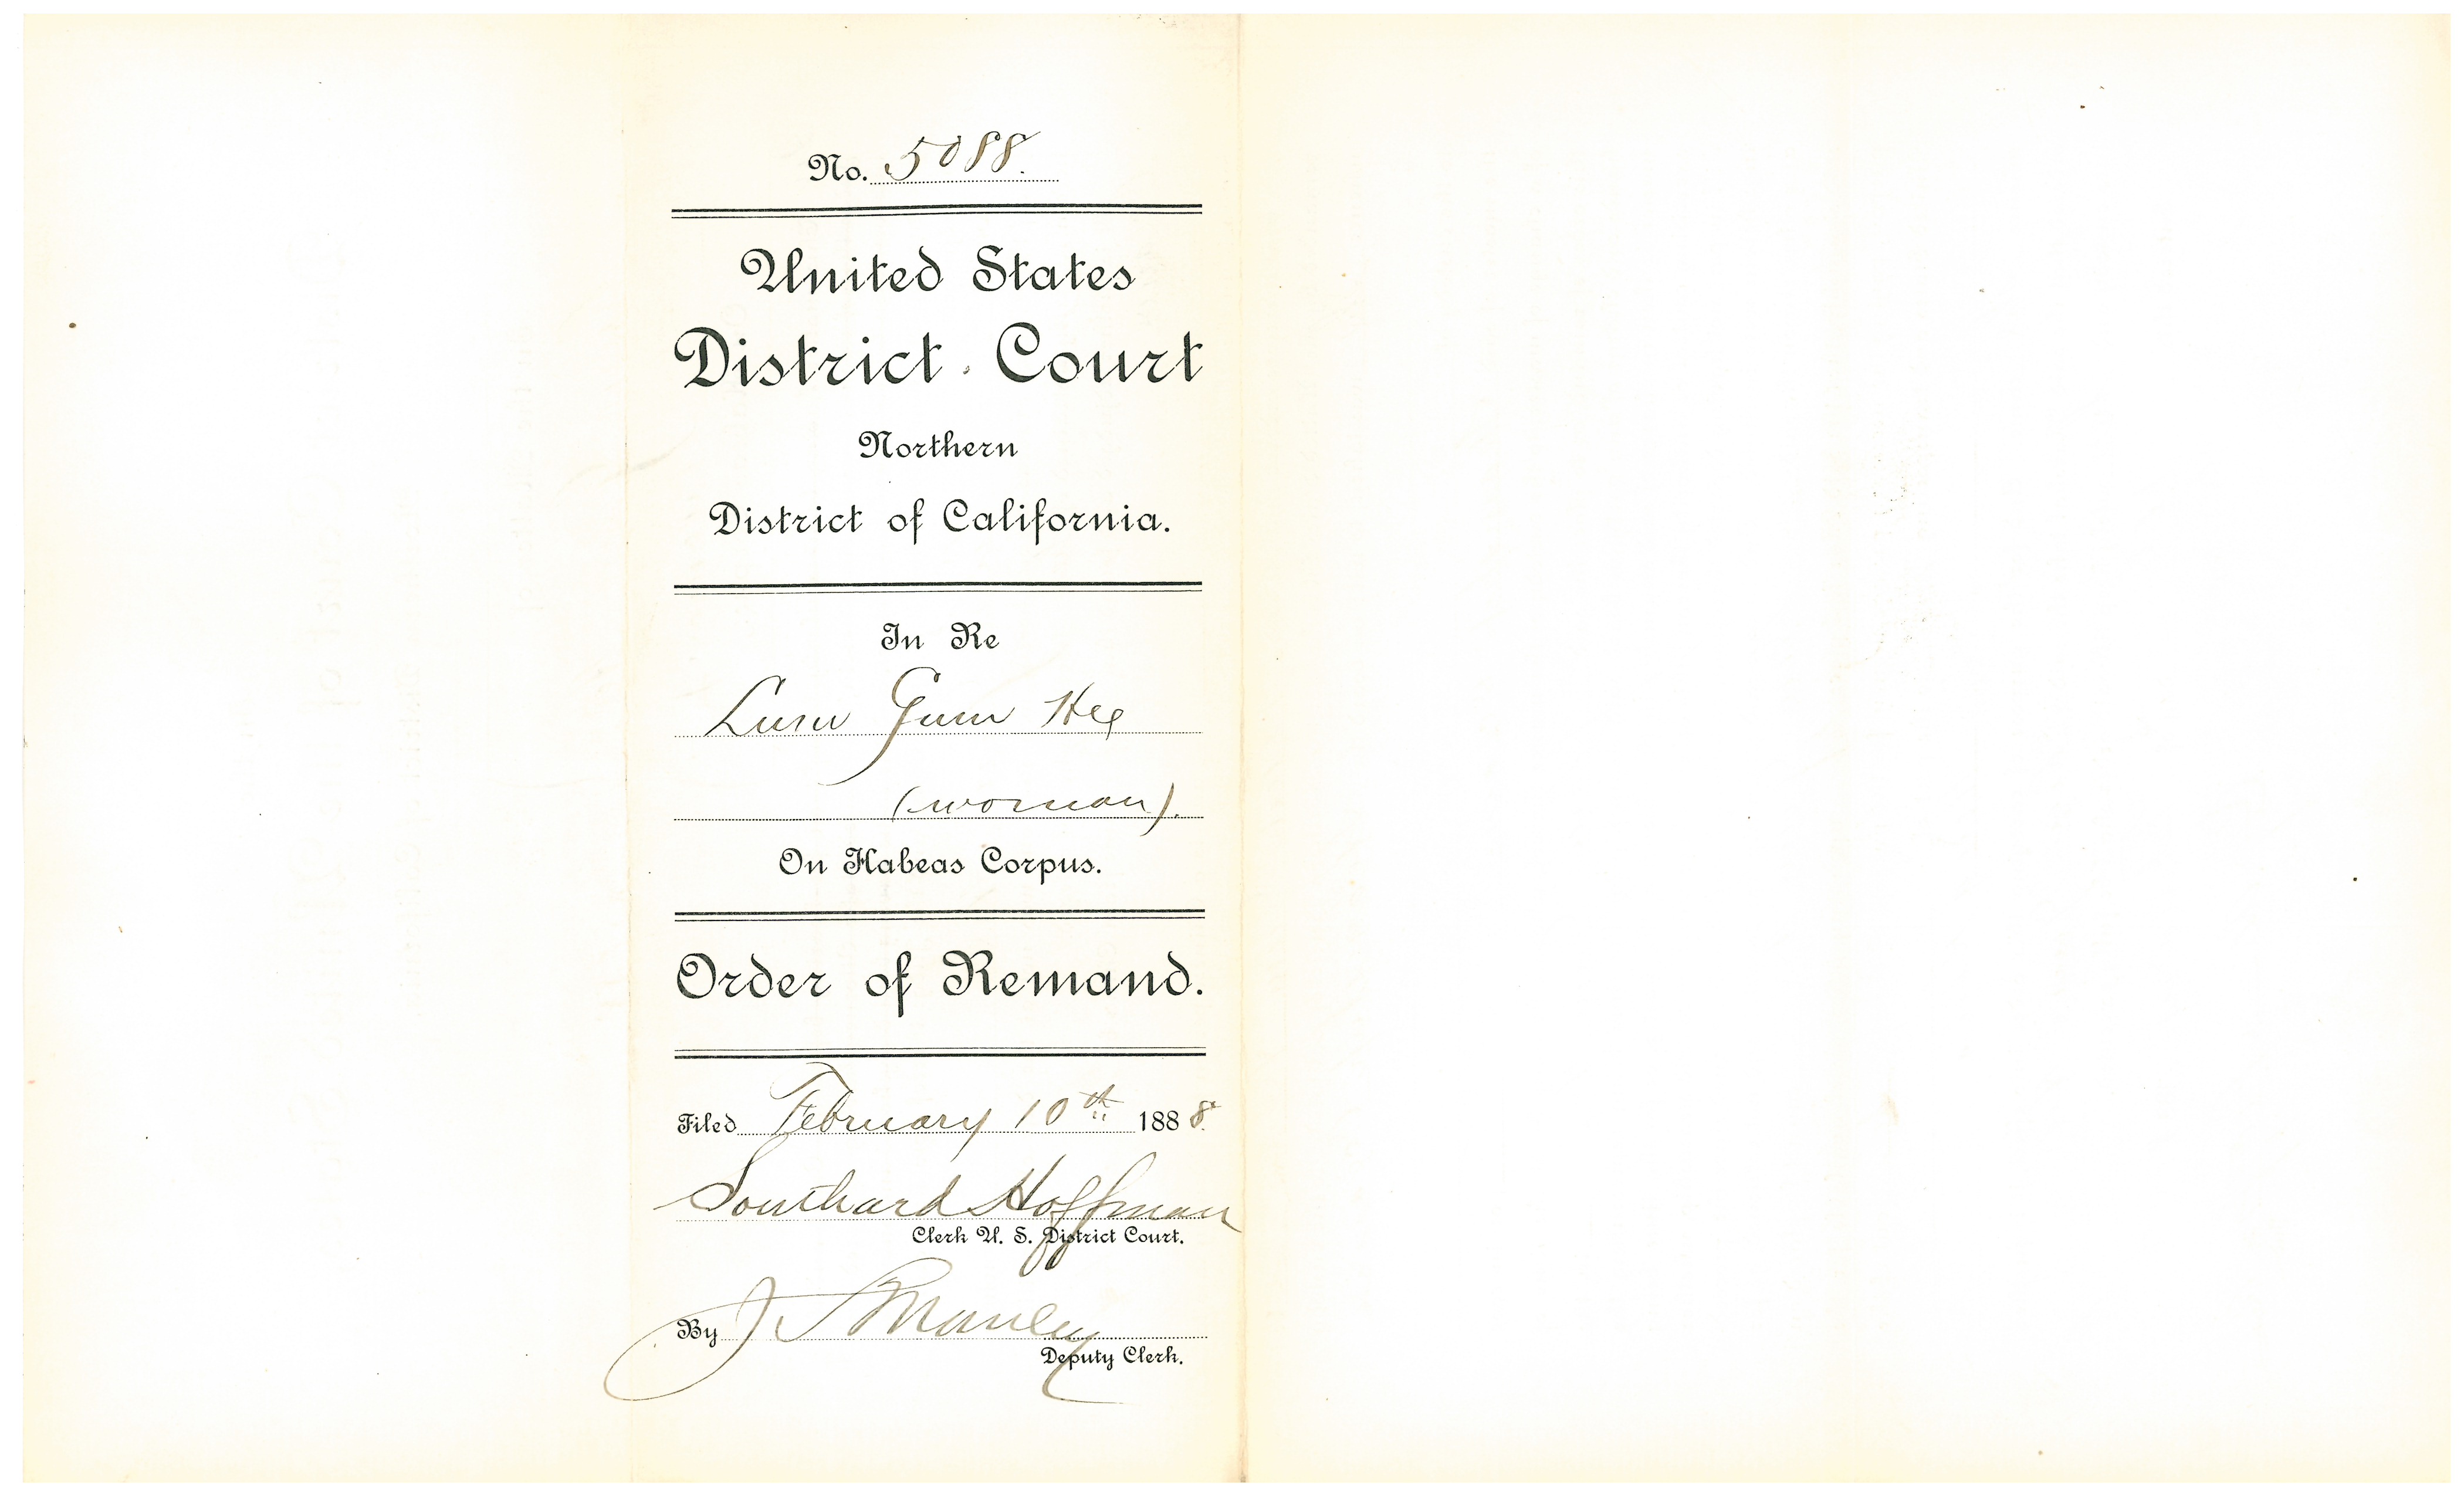 No. 5088.
United States
District Court
Northern
District of California.
In Re
Gum
(woman).
On Habeas Corpus.
Order of Remand.
Filed February 10th 1888.
Southard Hoffman
Clerk U. S. District Court.
By J. S. Manley
Deputy Clerk.